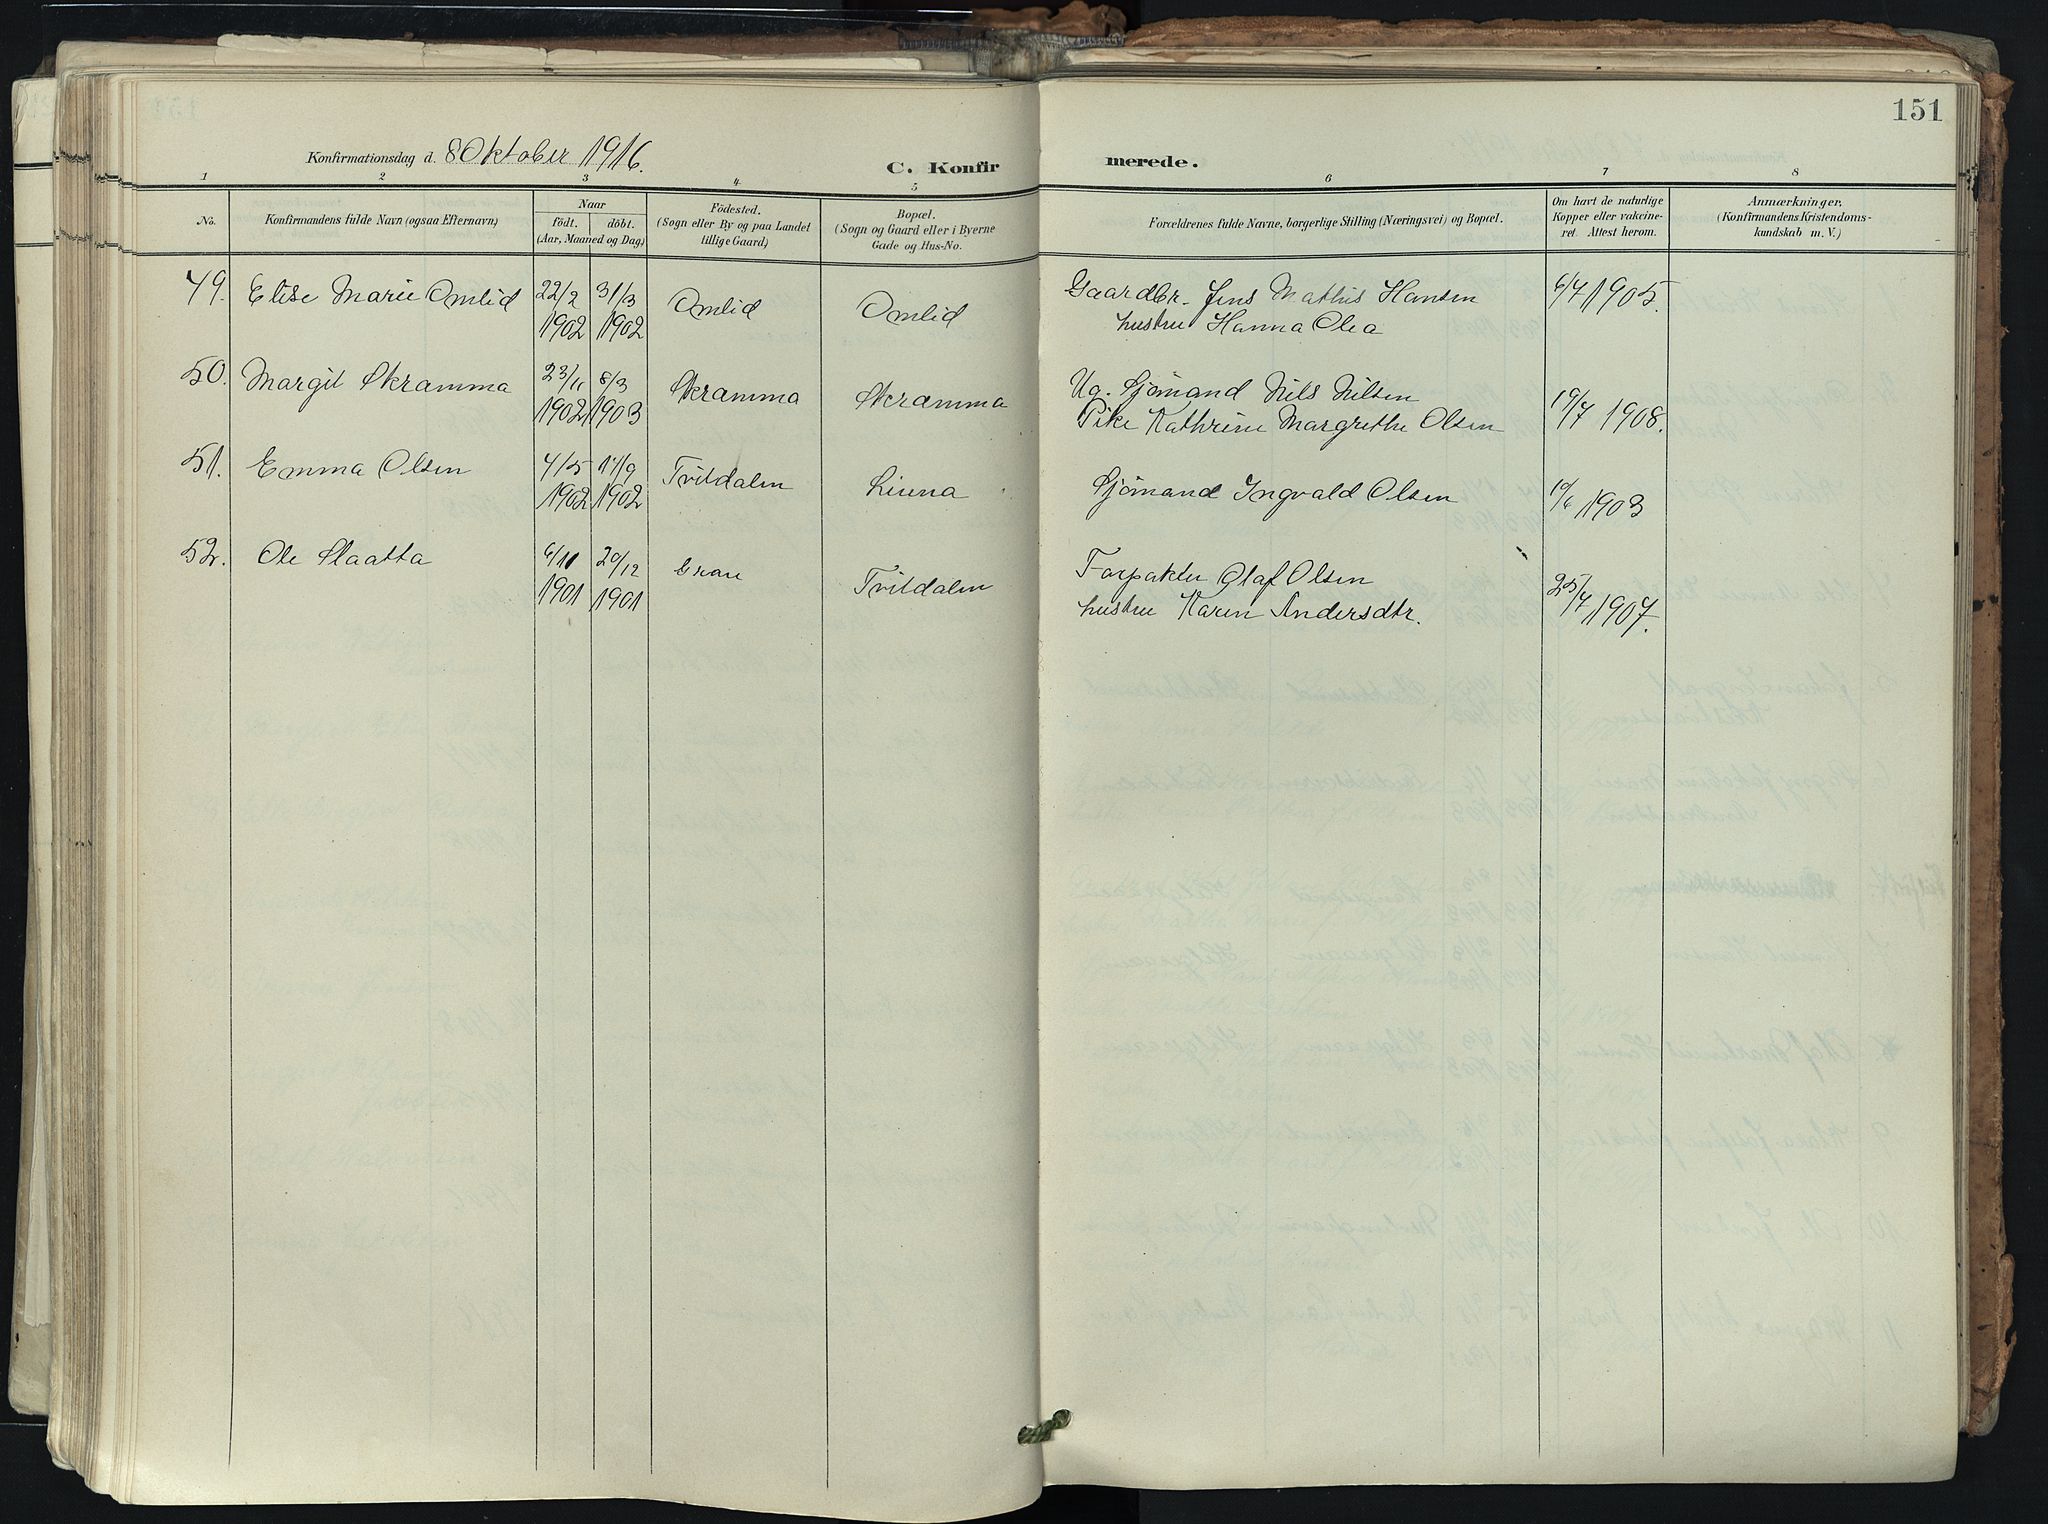 151
Konfirmationsdag d. 8 Oktober 1916.
C. Konfirmerede.
1 2 3 4 5 6 7 8
No.
Konfirmandens fulde Navn (ogsaa Efternavn)
Naar
födt. döbt.
(Aar, Maaned og Dag)
Födested.
(Sogn eller By og paa Landet
tillige Gaard)
Bopæl.
(Sogn og Gaard eller i Byerne
Gade og Hus-No.
Forældrenes fulde Navne, borgerlige Stilling (Næringsvei) og Bopæl.
Om havt de naturlige
Kopper eller vakcine-
ret. Attest herom.
Anmærkninger.
(Konfirmandens Kristendoms-
kundskab m. V.)
49. Elise Marie Omlid 22/2 31/3 Omlid Omlid Gaardbr. Jens Mathis Hansen 6/7 1905.
1902 1902 hustru Hanna Olea
50. Margit Skramma 23/11 8/3 Skramma Skramma Ug. Sjömand Nils Nilsen 19/7 1908.
1902 1903 Pike Kathrine Margrethe Olsen
51. Emma Olsen 4/5 14/9 Tvitdalen Liena Sjömand Ingvald Olsen 10/6 1903
1902 1902
52. Ole Slaatta 6/11 29/12 Grav Tvitdalen Forpakter Olaf Olsen 25/7 1907.
1901 1901 hustru Karen Andersdtr.